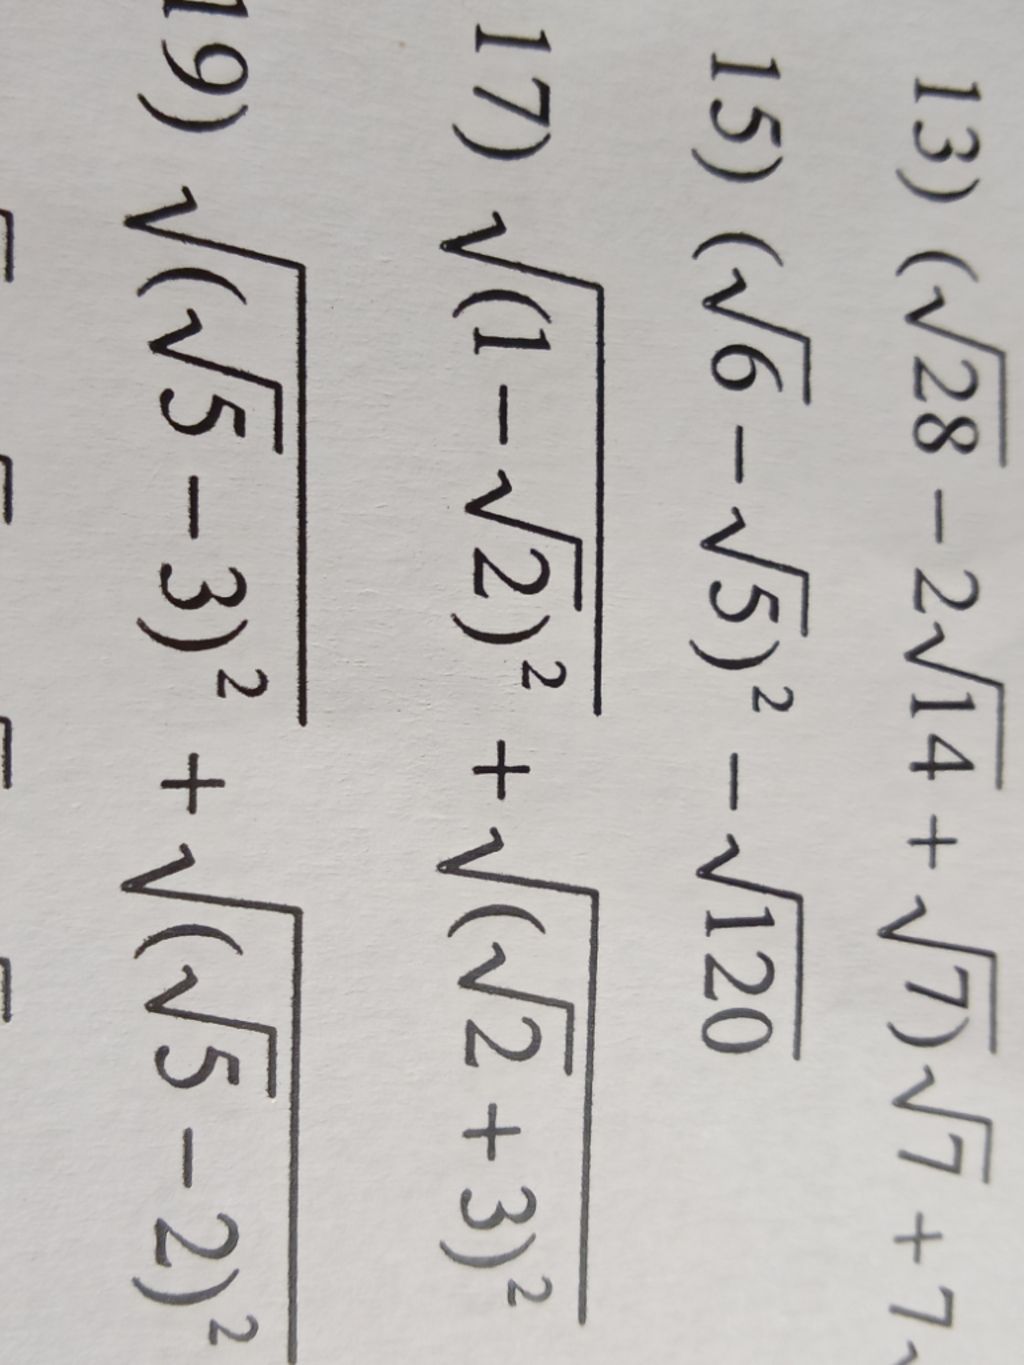 13) (√28 − 2√14 + √7)√7 + 7
15) (√6 − √5)² − √120
17) √(1 − √2)² + √(√2 + 3)²
19) √(√5 − 3)² + √(√5 − 2)²